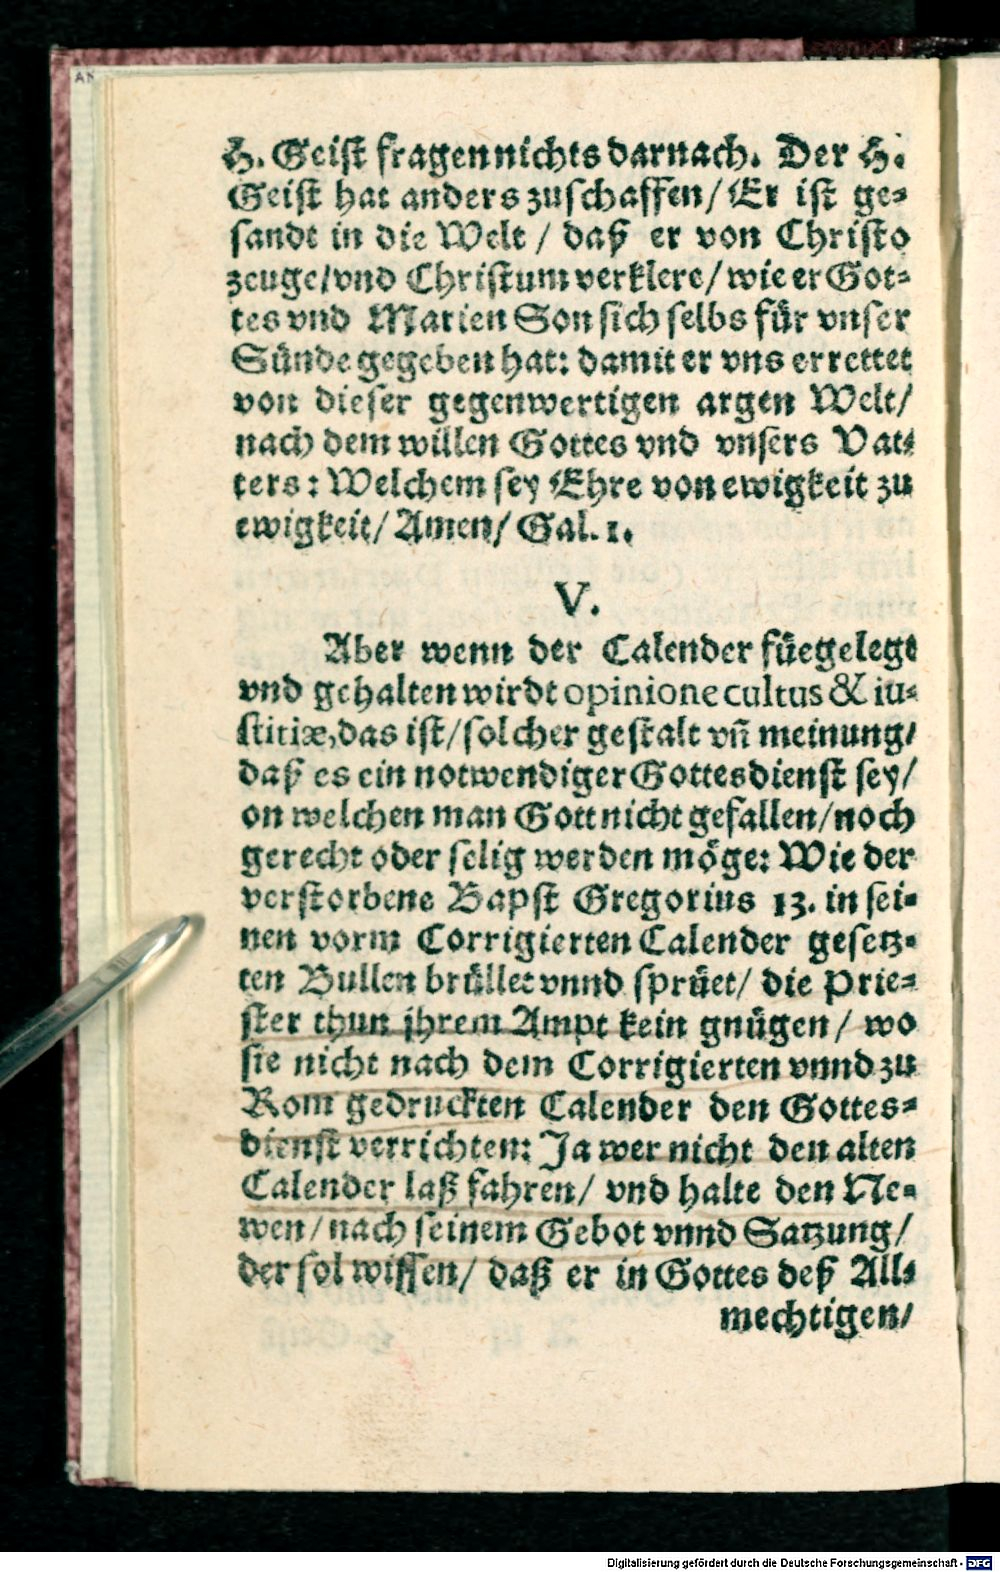 H. Geist fragen nichts darnach. Der H.
Geist hat anders zuschaffen/ Er ist ge-
sandt in die Welt / daß er von Christo
zeuge/vnd Christum verklere/ wie er Got-
tes vnd Marien Son sich selbs für vnser
Sünde gegeben hat: damit er vns errettet
von dieser gegenwertigen argen Welt/
nach dem willen Gottes vnd vnsers Vat-
ters: Welchem sey Ehre von ewigkeit zu
ewigkeit/ Amen/ Gal. 1.
V.
Aber wenn der Calender füegelegt
vnd gehalten wirdt opinione cultus & iu-
stitiæ, das ist/ solcher gestalt vñ meinung/
daß es ein notwendiger Gottesdienst sey/
on welchen man Gott nicht gefallen/noch
gerecht oder selig werden möge: Wie der
verstorbene Bapst Gregorius 13. in sei-
nen vorm Corrigierten Calender gesetz-
ten Bullen brüllet vnnd sprüet/ die Prie-
ster thun jhrem Ampt kein gnügen/ wo
sie nicht nach dem Corrigierten vnnd zu
Rom gedruckten Calender den Gottes-
dienst verrichten: Ja wer nicht den alten
Calender laß fahren/ vnd halte den Ne-
wen/ nach seinem Gebot vnnd Satzung/
der sol wissen/ daß er in Gottes deß All-
mechtigen/
Digitalisierung gefördert durch die Deutsche Forschungsgemeinschaft - DFG